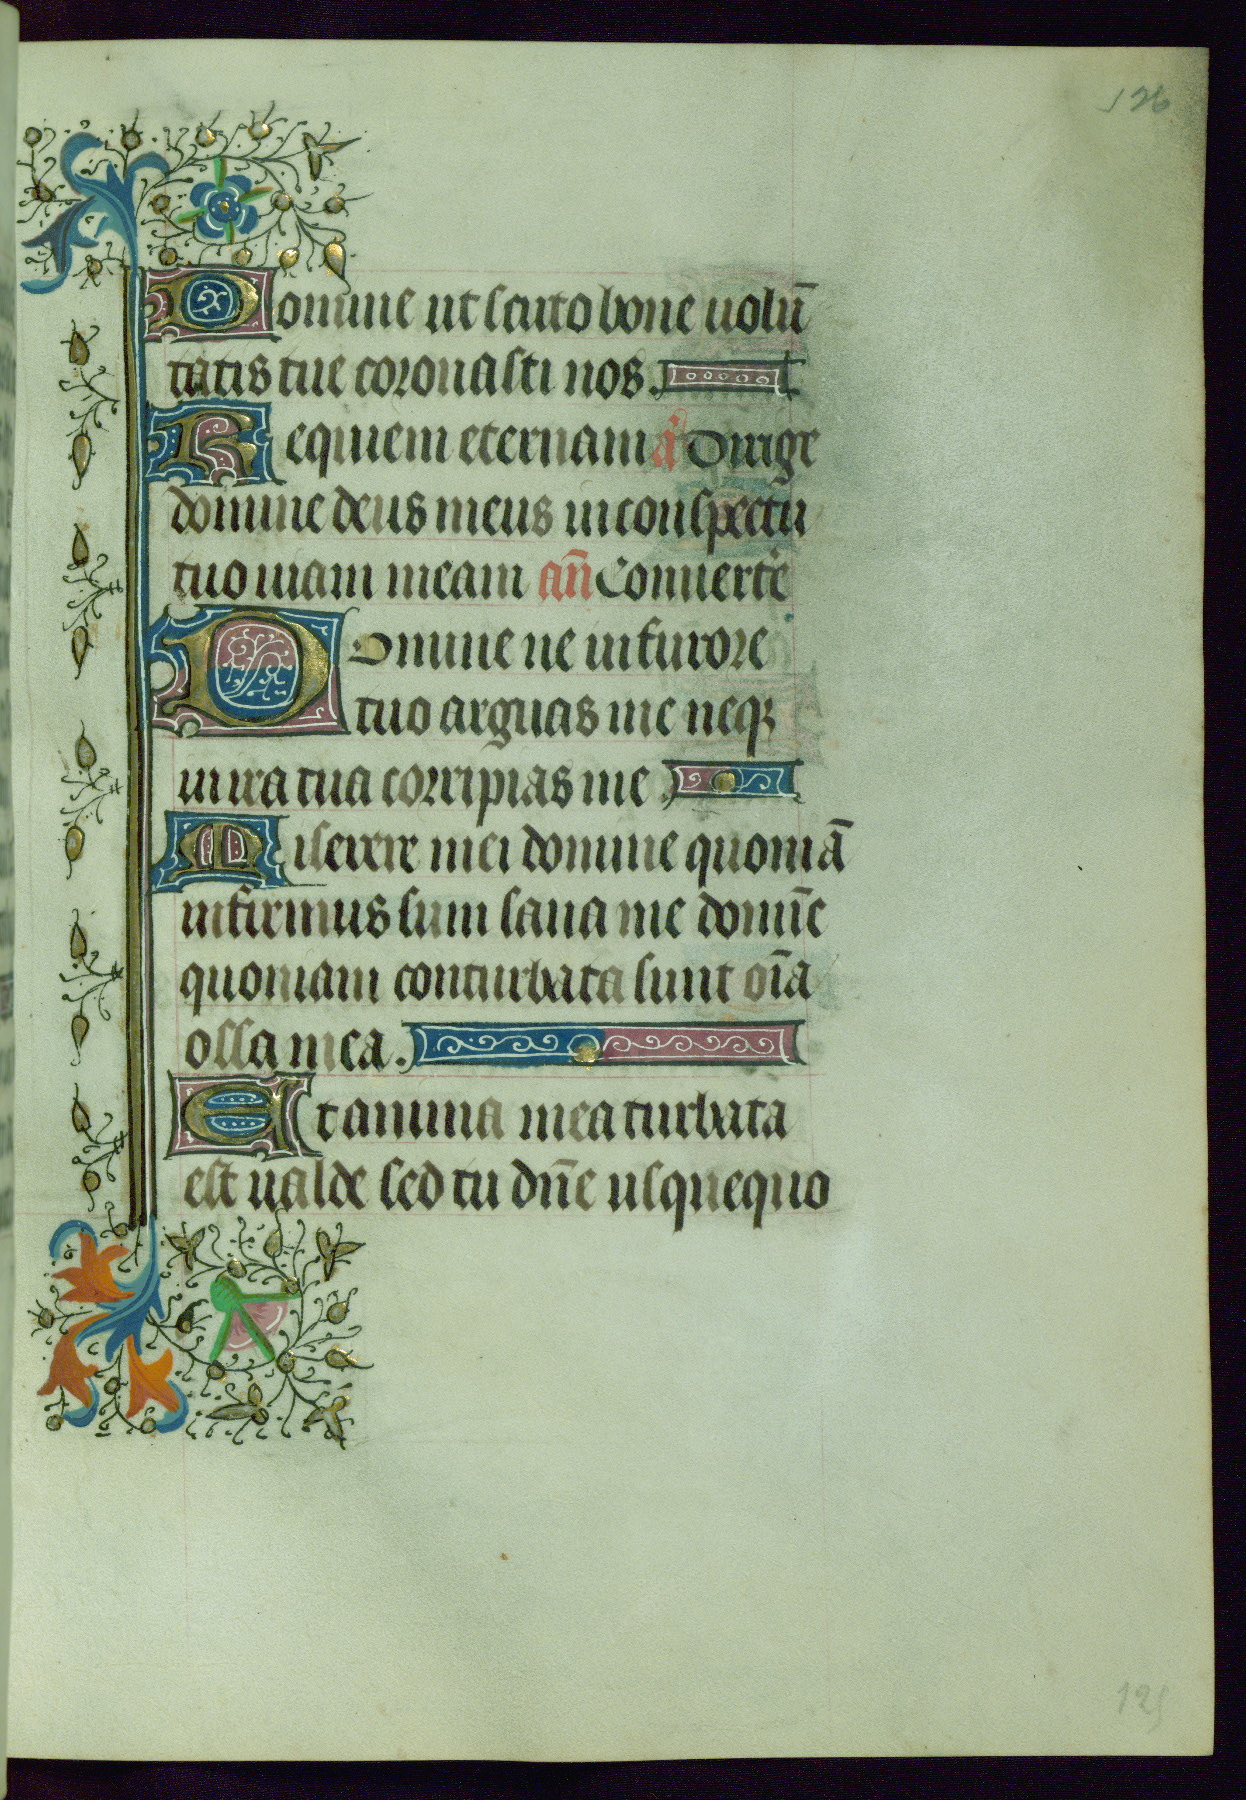 126
Domine ut scuto bone uolū
tatis tue coronasti nos.
Requiem eternam ā Dirige
domine deus meus in conspectu
tuo uiam meam an̄ Conuerte
Domine ne in furore
tuo arguas me neqꝫ
in ira tua corripias me
Miserere mei domine quoniā
infirmus sum sana me domīe
quoniam conturbata sunt oīa
ossa mea.
Et anima mea turbata
est ualde sed tu dn̄e usquequo
125